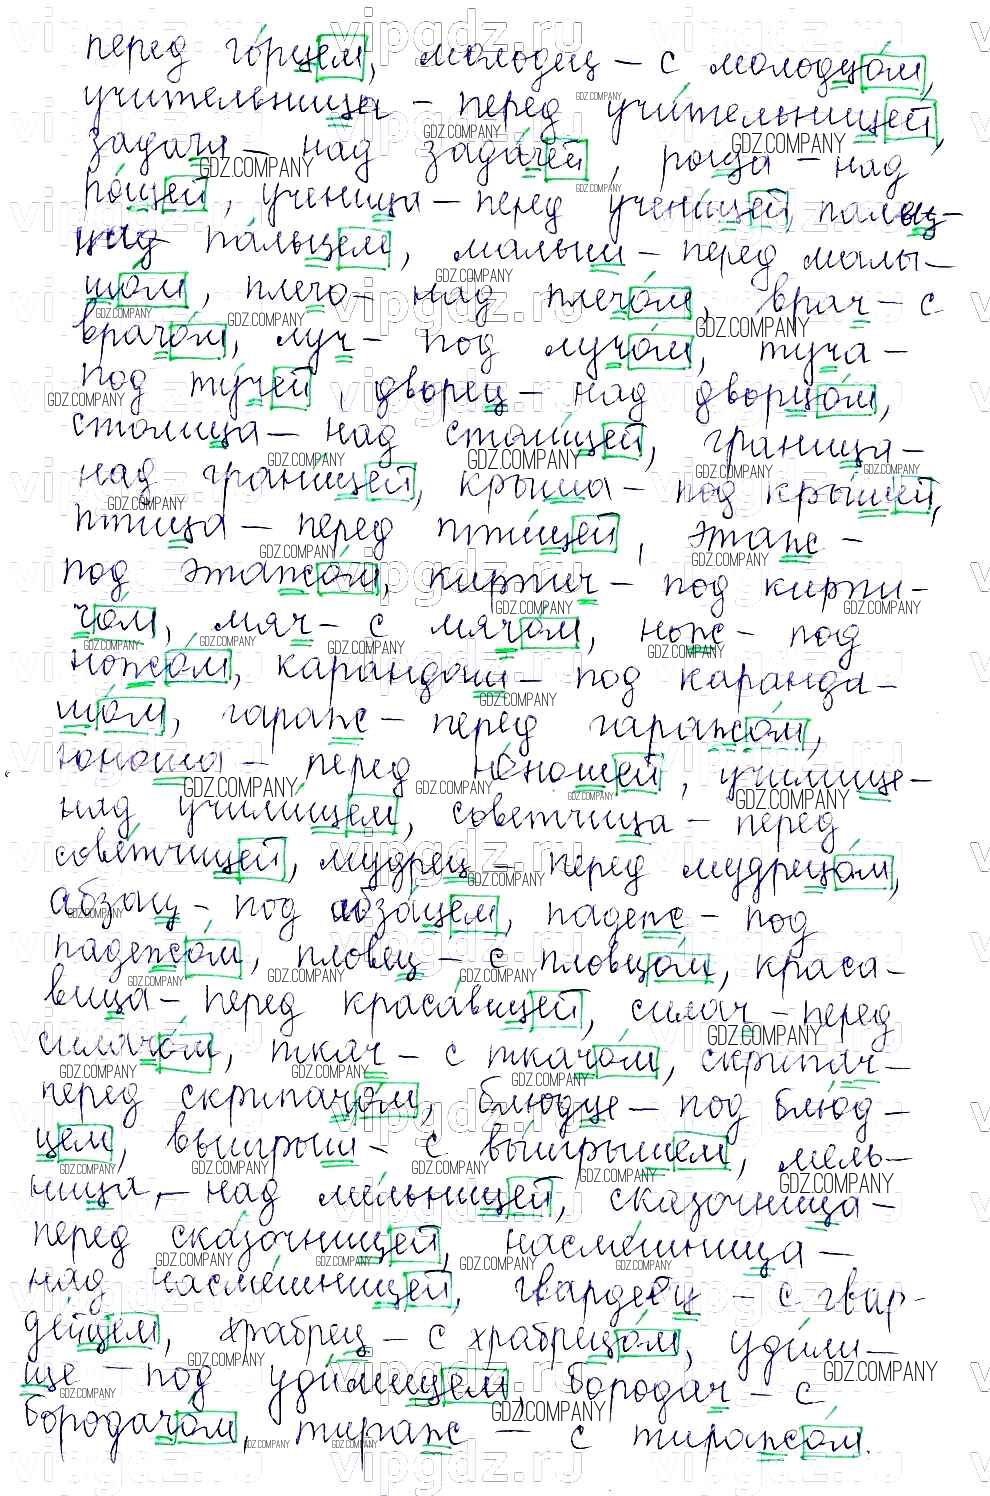 перед горцем, молодец – с молодцом,
учительница – перед учительницей,
задача – над задачей, роща – над
рощей, ученица – перед ученицей, палец –
над пальцем, малыш – перед малы-
шом, плечо – над плечом, врач – с
врачом, луч – под лучом, туча –
под тучей, дворец – над дворцом,
столица – над столицей, граница –
над границей, крыша – под крышей,
птица – перед птицей, этаж –
под этажом, кирпич – под кирпи-
чом, мяч – с мячом, нож – под
ножом, карандаш – под каранда-
шом, гараж – перед гаражом,
юноша – перед юношей, училище –
над училищем, советчица – перед
советчицей, мудрец – перед мудрецом,
абзац – под абзацем, падеж – под
падежом, пловец – с пловцом, краса-
вица – перед красавицей, силач – перед
силачом, ткач – с ткачом, скрипач –
перед скрипачом, блюдце – под блюд-
цем, выигрыш – с выигрышем, мель-
ница, – над мельницей, сказочница –
перед сказочницей, насмешница –
над насмешницей, гвардеец – с гвар-
дейцем, храбрец – с храбрецом, удили-
ще – под удилищем, бородач – с
бородачом, тираж – с тиражом.